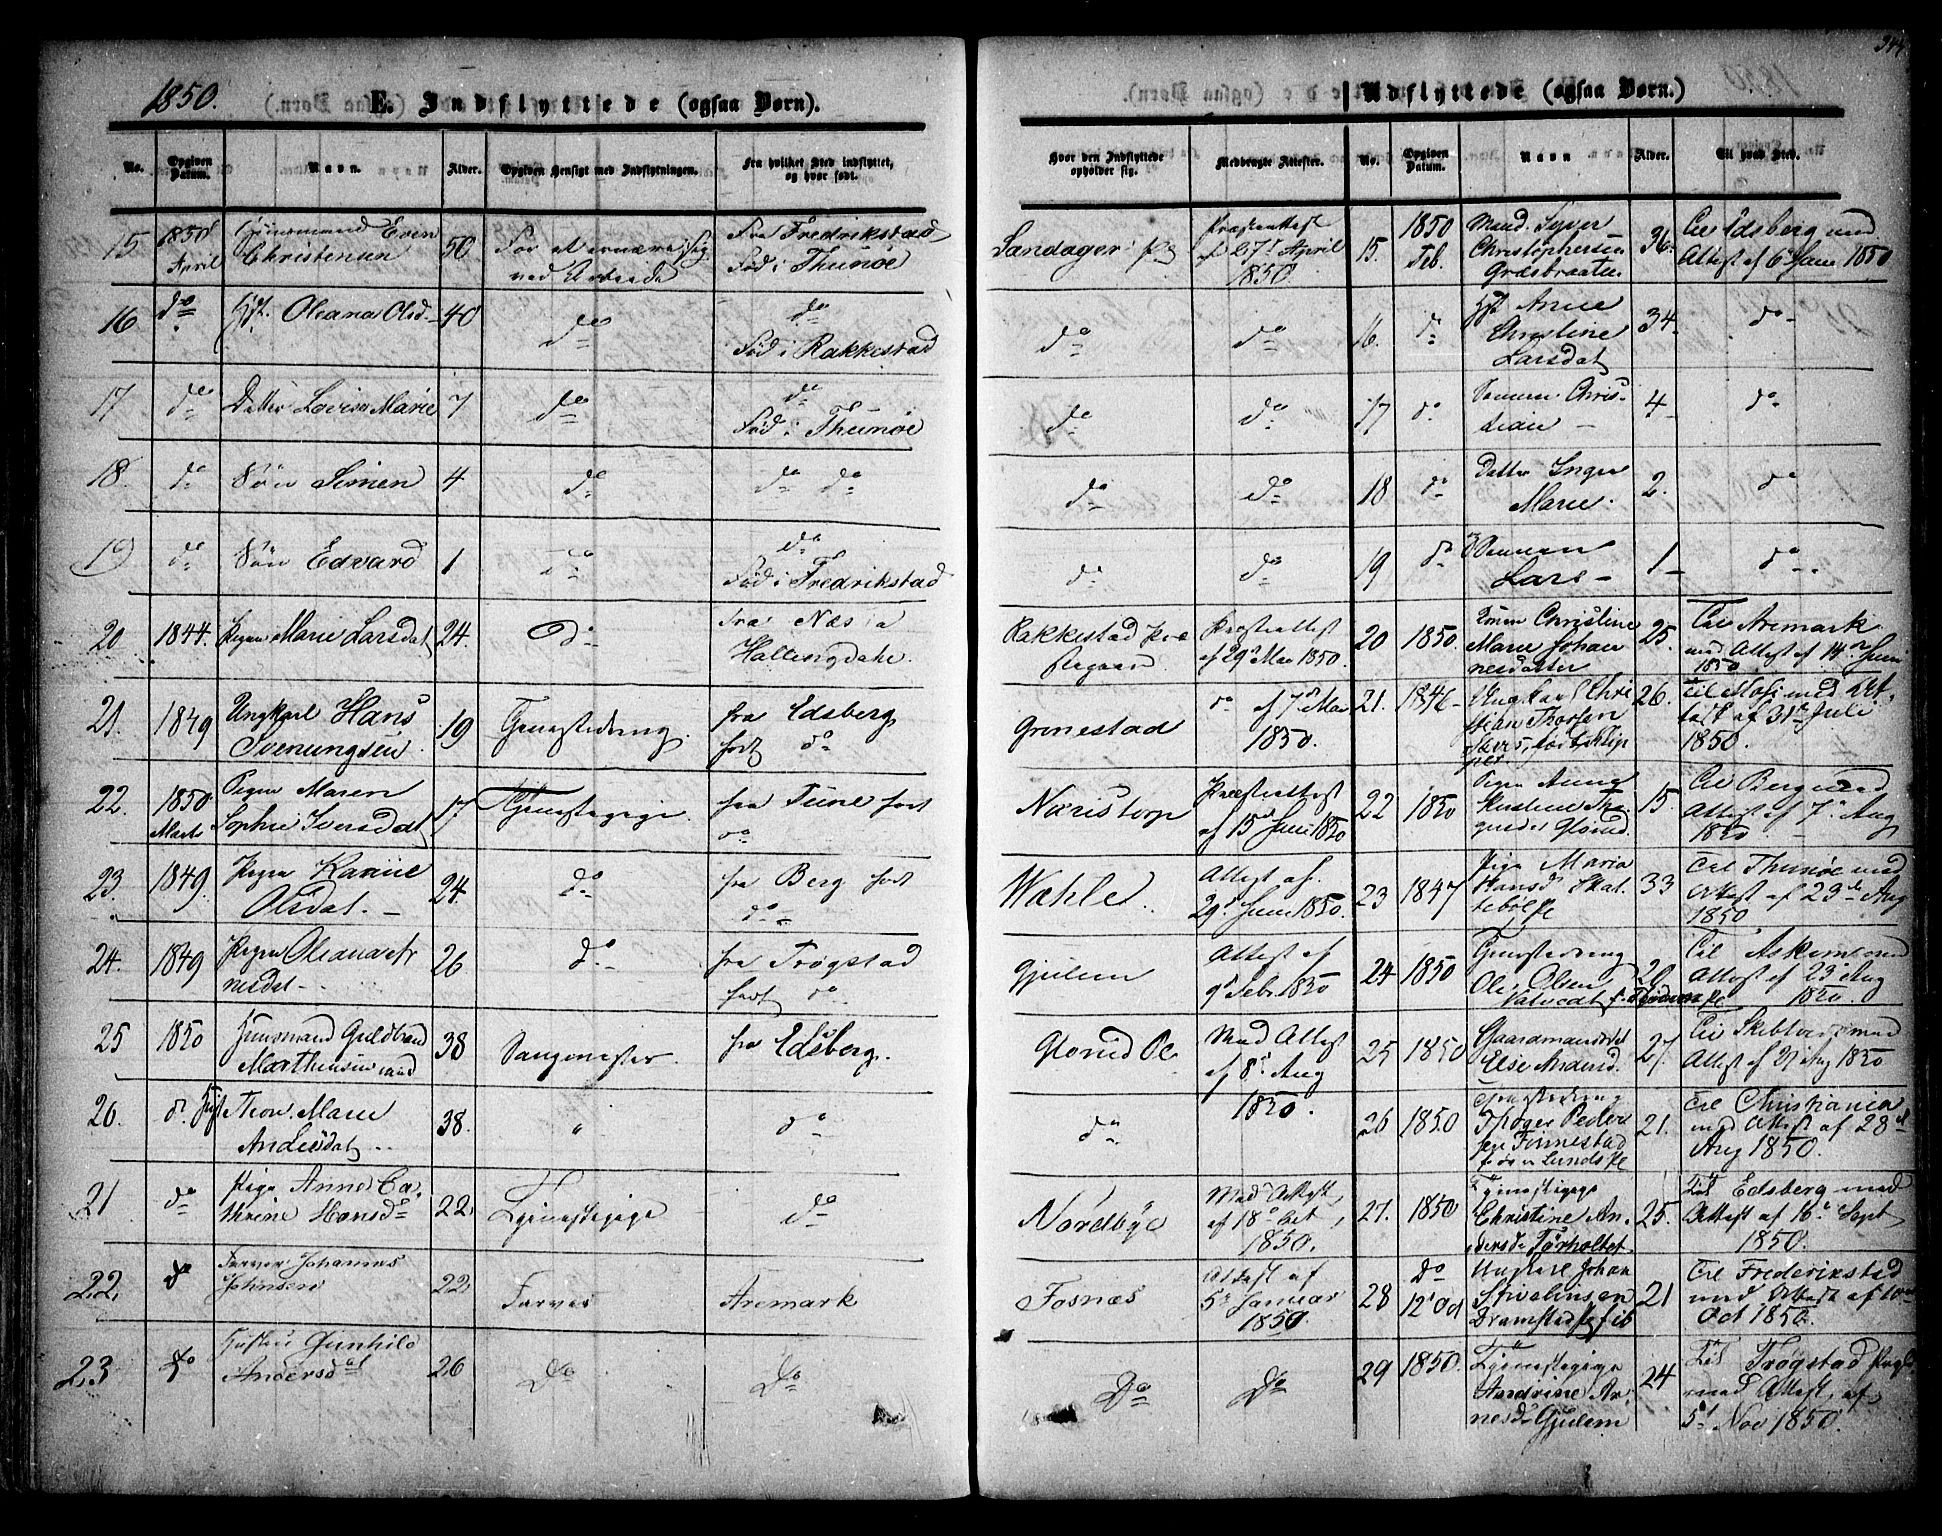 1850.
E. Indflyttede (ogsaa Børn).
No. | Opgiven Datum. | Navn. | Alder. | Opgiven Hensigt med Indflytningen. | Fra hvilket Sted indflyttet, og hvor født.
15 | 1850 April | Huusmand Even Christensen | 50 | For at ernære sig ved Arbeide | Fra Fredrikstad Fød i Thunøe
16 | do | Hst. Oleana Olsd. | 40 | do | do Fød i Rakkestad
17 | do | Datter Lovisa Marie | 7 | do | do Fød i Thunøe
18. | do | Søn Simen | 4 | do | do do
19 | do | Søn Edvard | 1 | do | do Fød i Fredrikstad
20 | 1844. | Pigen Marie Larsdat | 24. | do | Fra Næs i Hallingdale.
21. | 1849 | Ungkarl Hans Svenungsen | 19 | Tjenestedreng. | fra Edsberg født do
22. | 1850 Marts | Pigen Maren Sophie Iversdat | 17 | Tjenestepige | fra Tune født do
23. | 1849. | Pigen Karine Olsdat. | 24. | do | fra Berg født do
24. | 1849 | Pigen Oleana Arnesdat | 26 | do | fra Trøgstad født do
25 | 1850 | Huusmand Guldbrand Marthinsen | 38 | | fra Edsberg.
26. | do | Kon. Marie Andersdat | 38. | " | do
21 | do | Pige Anne Cathrine Hansd | 22. | Tjenestepige | do
22. | do | Farver Johannes Johnsen | 22 | Farver | Aremark
23 | do | Hustru Gunhild Andersdat | 26 | Do | Do
Udflyttede (ogsaa Børn.)
Hvor den Indflyttede opholder sig. | Medbragte Attester. | No. | Opgiven Datum. | Navn | Alder. | Til hvad Sted.
Sandager | Præsteattest f 27 April 1850. | 15. | 1850 Feb. | Mand Syver Christophersen Græsbraaten | 36 | Til Edsberg med Attest af 6 Juni 1850
do | do | 16. | do | Hst Anne Christine Larsdat | 34 | do
do | do | 17 | do | Sønnen Christian | 4 | do
do | do | 18 | do | Datter Inger Marie. | 2. | do
do | do | 19 | do | Sønnen Lars | 1 | do
Rakkestad Præstegaard | Præsteattest af 29 Mai 1850. | 20 | 1850. | Christine Marie Johannesdatter | 25. | Til Aremark med Attest af 14 Juni 1850
Grønestad | do af 7 Mai 1850. | 21. | 1846 | Ungkarl Christian Thorsen | 26. | Til Moss med Attest af 31te Juli 1850.
Næristorp | Præsteattest af 15 Juni 1850 | 22 | 1850 | Pigen Anne | 15 | Til Berg med Attest af 7 Aug 1850
Wæhle. | Attest af 29 Juni 1850. | 23 | 1847 | Pige Maria Hansd Skattebøl | 33 | Til Thunøe med Attest af 23de Aug 1850
Gjulem | Attest af 9 Febr 1850 | 24 | 1850 | Tjenestedreng Ole Olsen | 20 | Til Askim med Attest af 23 Aug 1850.
Glorud | Med Attest af 8 Aug 1850. | 25 | 1850 | Else Andersd. | 27. | Til Skibtvet med Attest af 27 Aug 1850
do | | 26 | 1850 | Tjenestedreng Thoger Pedersen Finnestad | 21. | Til Christiania med Attest af 28 Aug 1850.
Nordbye | Med Attest af 18 Oct 1850. | 27. | 1850 | Tjenestepige Christine Andersd Tørholtet | 25. | Til Edsberg med Attest af 16 Sept 1850.
Fosnæs | Attest af 5 Januar 1850 | 28 | Do 12 Oct | Ungkarl Johan | 21 | Til Frederikstad med Attest af Oct 1850.
Do | Do | 29 | 1850. | Tjenestepige Andrine Arnesd Gjulem | 24 | Til Trøgstad med Attest af 5 Nov 1850.